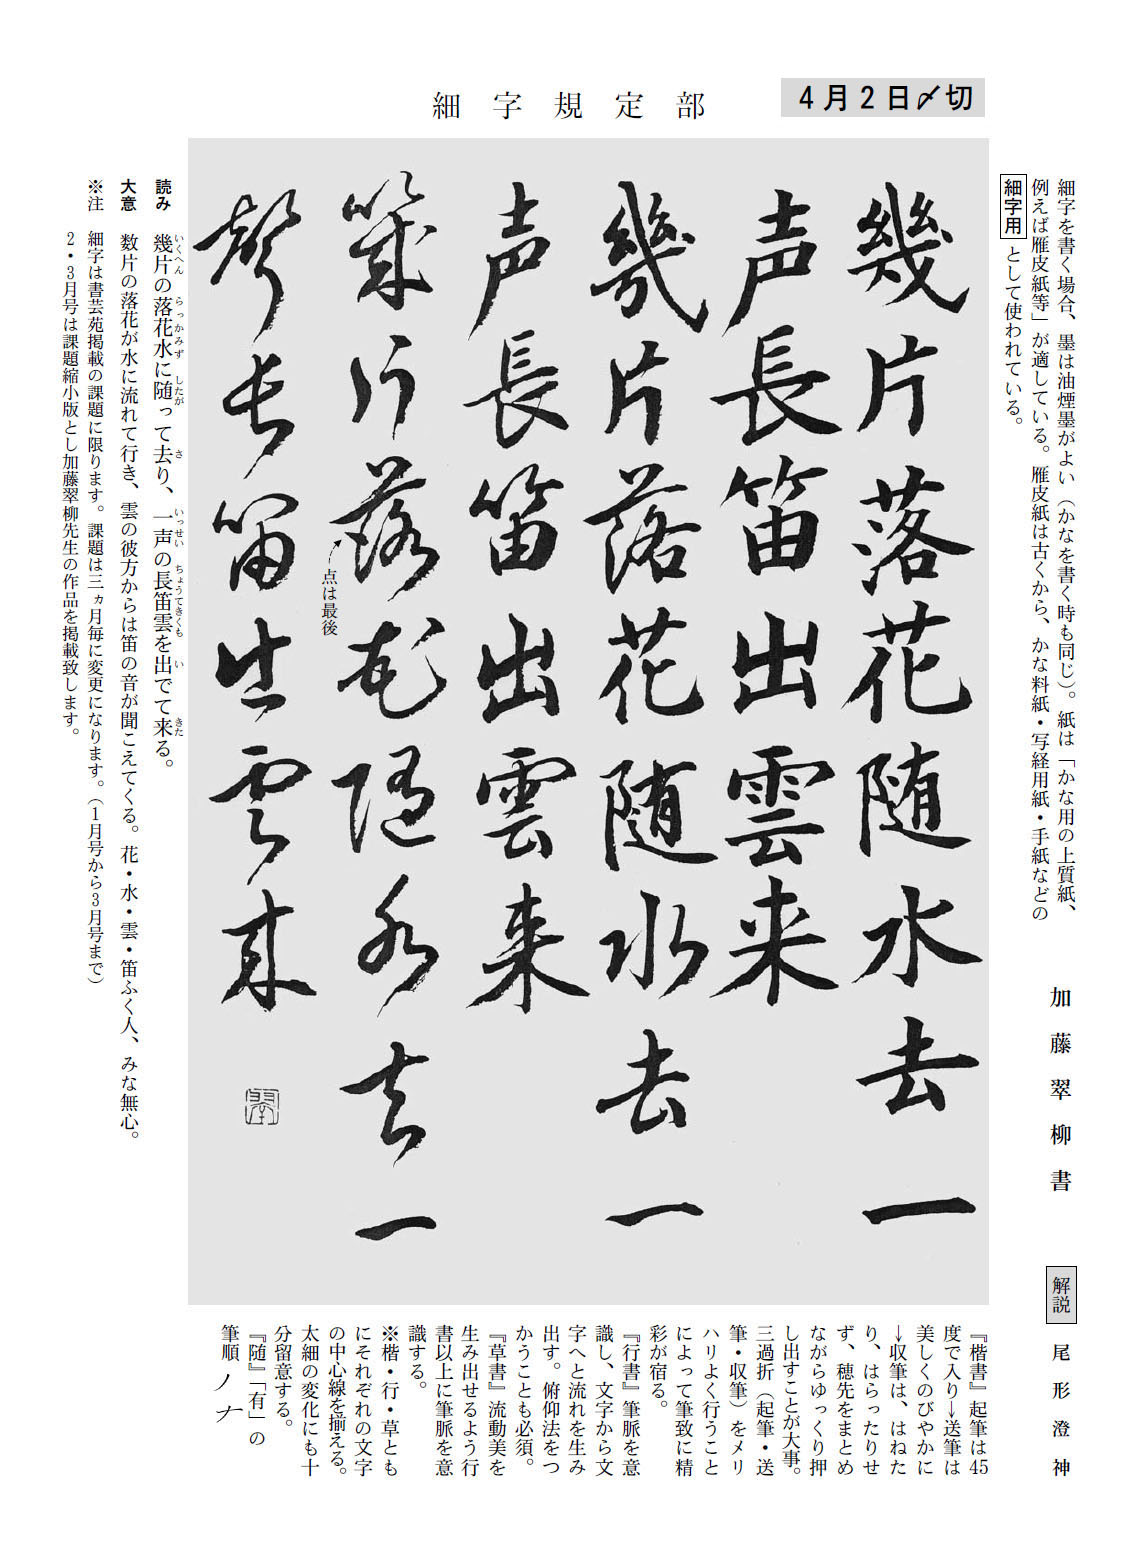 細字規定部
4月2日〆切
細字を書く場合、墨は油煙墨がよい（かなを書く時も同じ）。紙は「かな用の上質紙、
例えば雁皮紙等」が適している。雁皮紙は古くから、かな料紙・写経用紙・手紙などの
細字用として使われている。
加藤翠柳書
幾片落花随水去一
声長笛出雲来
幾片落花随水去一
声長笛出雲来
幾片落花随水去一
聲長笛出雲来
点は最後
読み 幾片の落花水に随って去り、一声の長笛雲を出でて来る。
いくへん らっかみず したが さ いっせい ちょうてきくも い きた
大意 数片の落花が水に流れて行き、雲の彼方からは笛の音が聞こえてくる。花・水・雲・笛ふく人、みな無心。
※注 細字は書芸苑掲載の課題に限ります。課題は三ヵ月毎に変更になります。（1月号から3月号まで）
2・3月号は課題縮小版とし加藤翠柳先生の作品を掲載致します。
解説 尾形澄神
『楷書』起筆は45
度で入り→送筆は
美しくのびやかに
→収筆は、はねた
り、はらったりせ
ず、穂先をまとめ
ながらゆっくり押
し出すことが大事。
三過折（起筆・送
筆・収筆）をメリ
ハリよく行うこと
によって筆致に精
彩が宿る。
『行書』筆脈を意
識し、文字から文
字へと流れを生み
出す。俯仰法をつ
かうことも必須。
『草書』流動美を
生み出せるよう行
書以上に筆脈を意
識する。
※楷・行・草とも
にそれぞれの文字
の中心線を揃える。
太細の変化にも十
分留意する。
『随』「有」の
筆順ノナ